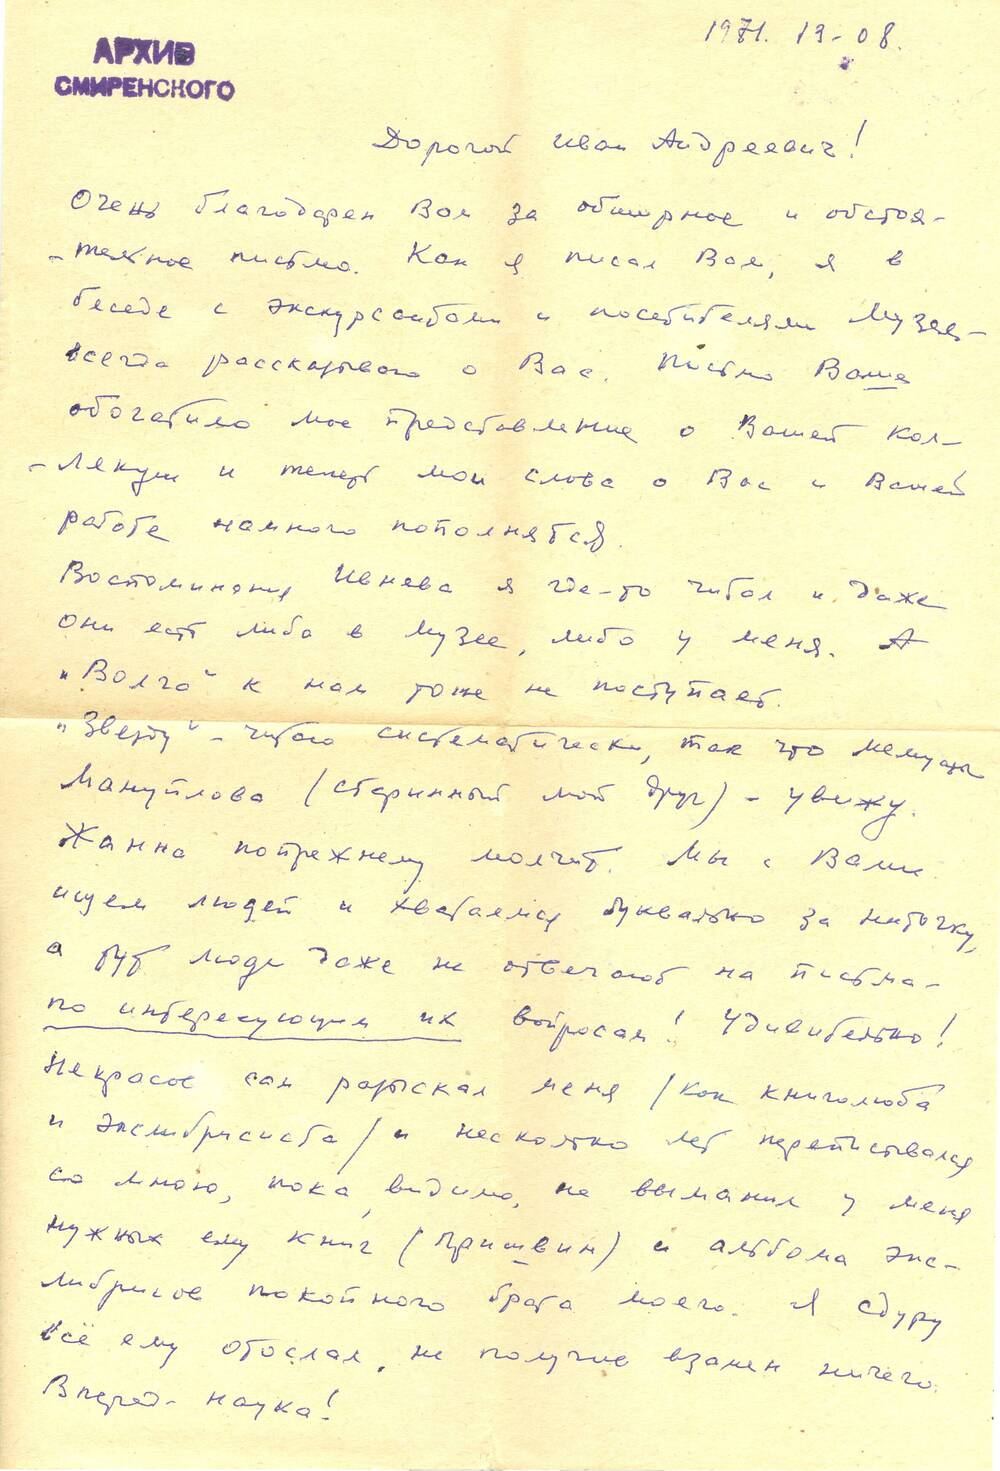 АРХИВ
СМИРЕНСКОГО
1971. 13-08.
Дорогой Иван Андреевич!
Очень благодарен Вам за обширное и обстоя-
-тельное письмо. Как я писал Вам, я в
беседе с экскурсантами и посетителями Музея-
всегда рассказываю о Вас. Письмо Ваше
обогатило мое представление о Вашей кол-
-лекции и теперь мои слова о Вас и Вашей
работе намного пополнятся.
Воспоминания Ивнева я где-то читал и даже
они есть либо в музее, либо у меня. А
"Волга" к нам тоже не поступает.
"Звезду" - читаю систематически, так что мемуары
Мануйлова (старинный мой друг) - увижу.
Жанна попрежнему молчит. Мы с Вами
ищем людей и хватаемся буквально за ниточку,
а тут люди даже не отвечают на письма-
по интересующим их вопросам! Удивительно!
Некрасов сам разыскал меня /как книголюба
и экслибрисиста/ и несколько лет переписывался
со мною, пока, видимо, не выманил у меня
нужных ему книг (Пришвин) и альбома экс-
либрисов покойного брата моего. Я сдуру
всё ему отослал, не получив взамен ничего.
Вперед- наука!